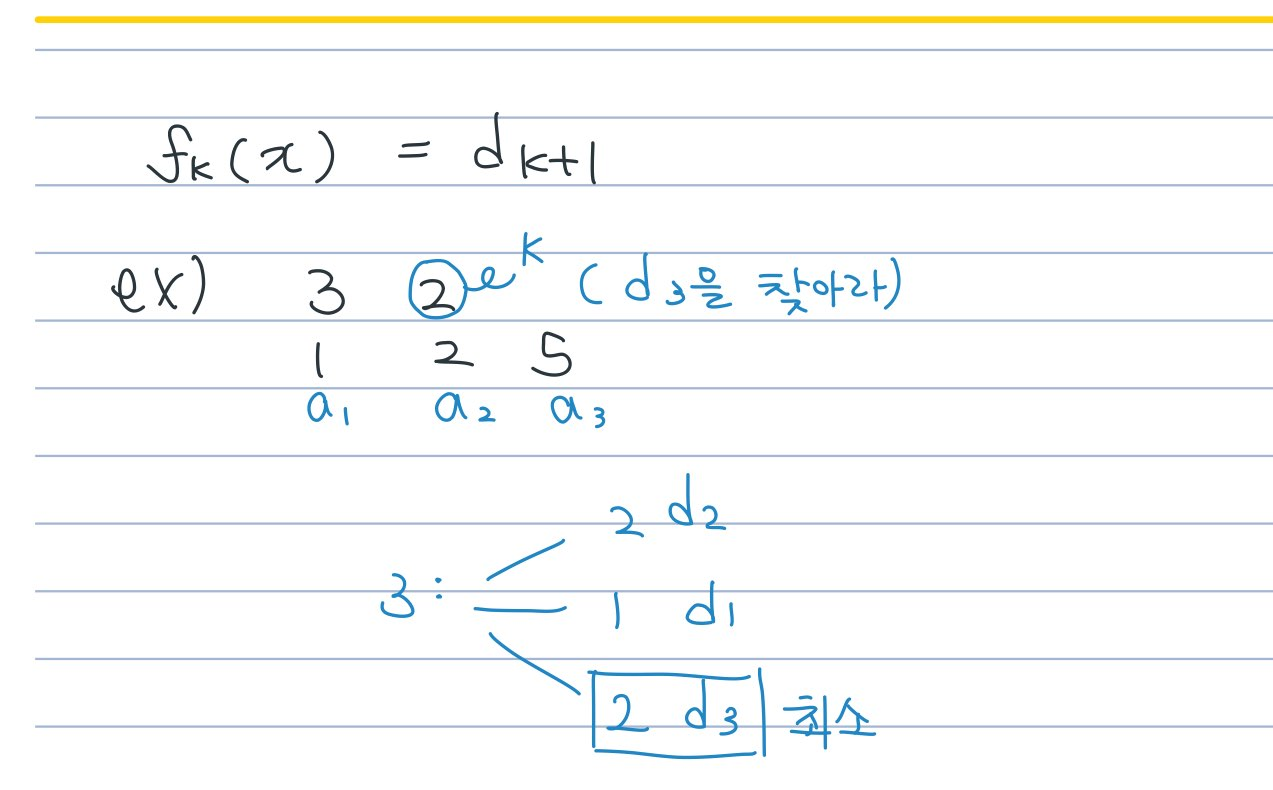 fₖ(x) = dₖ₊₁
ex) 3 2 k (d₃을 찾아라)
1 2 5
a₁ a₂ a₃
2 d₂
3 : 1 d₁
2 d₃ 최소